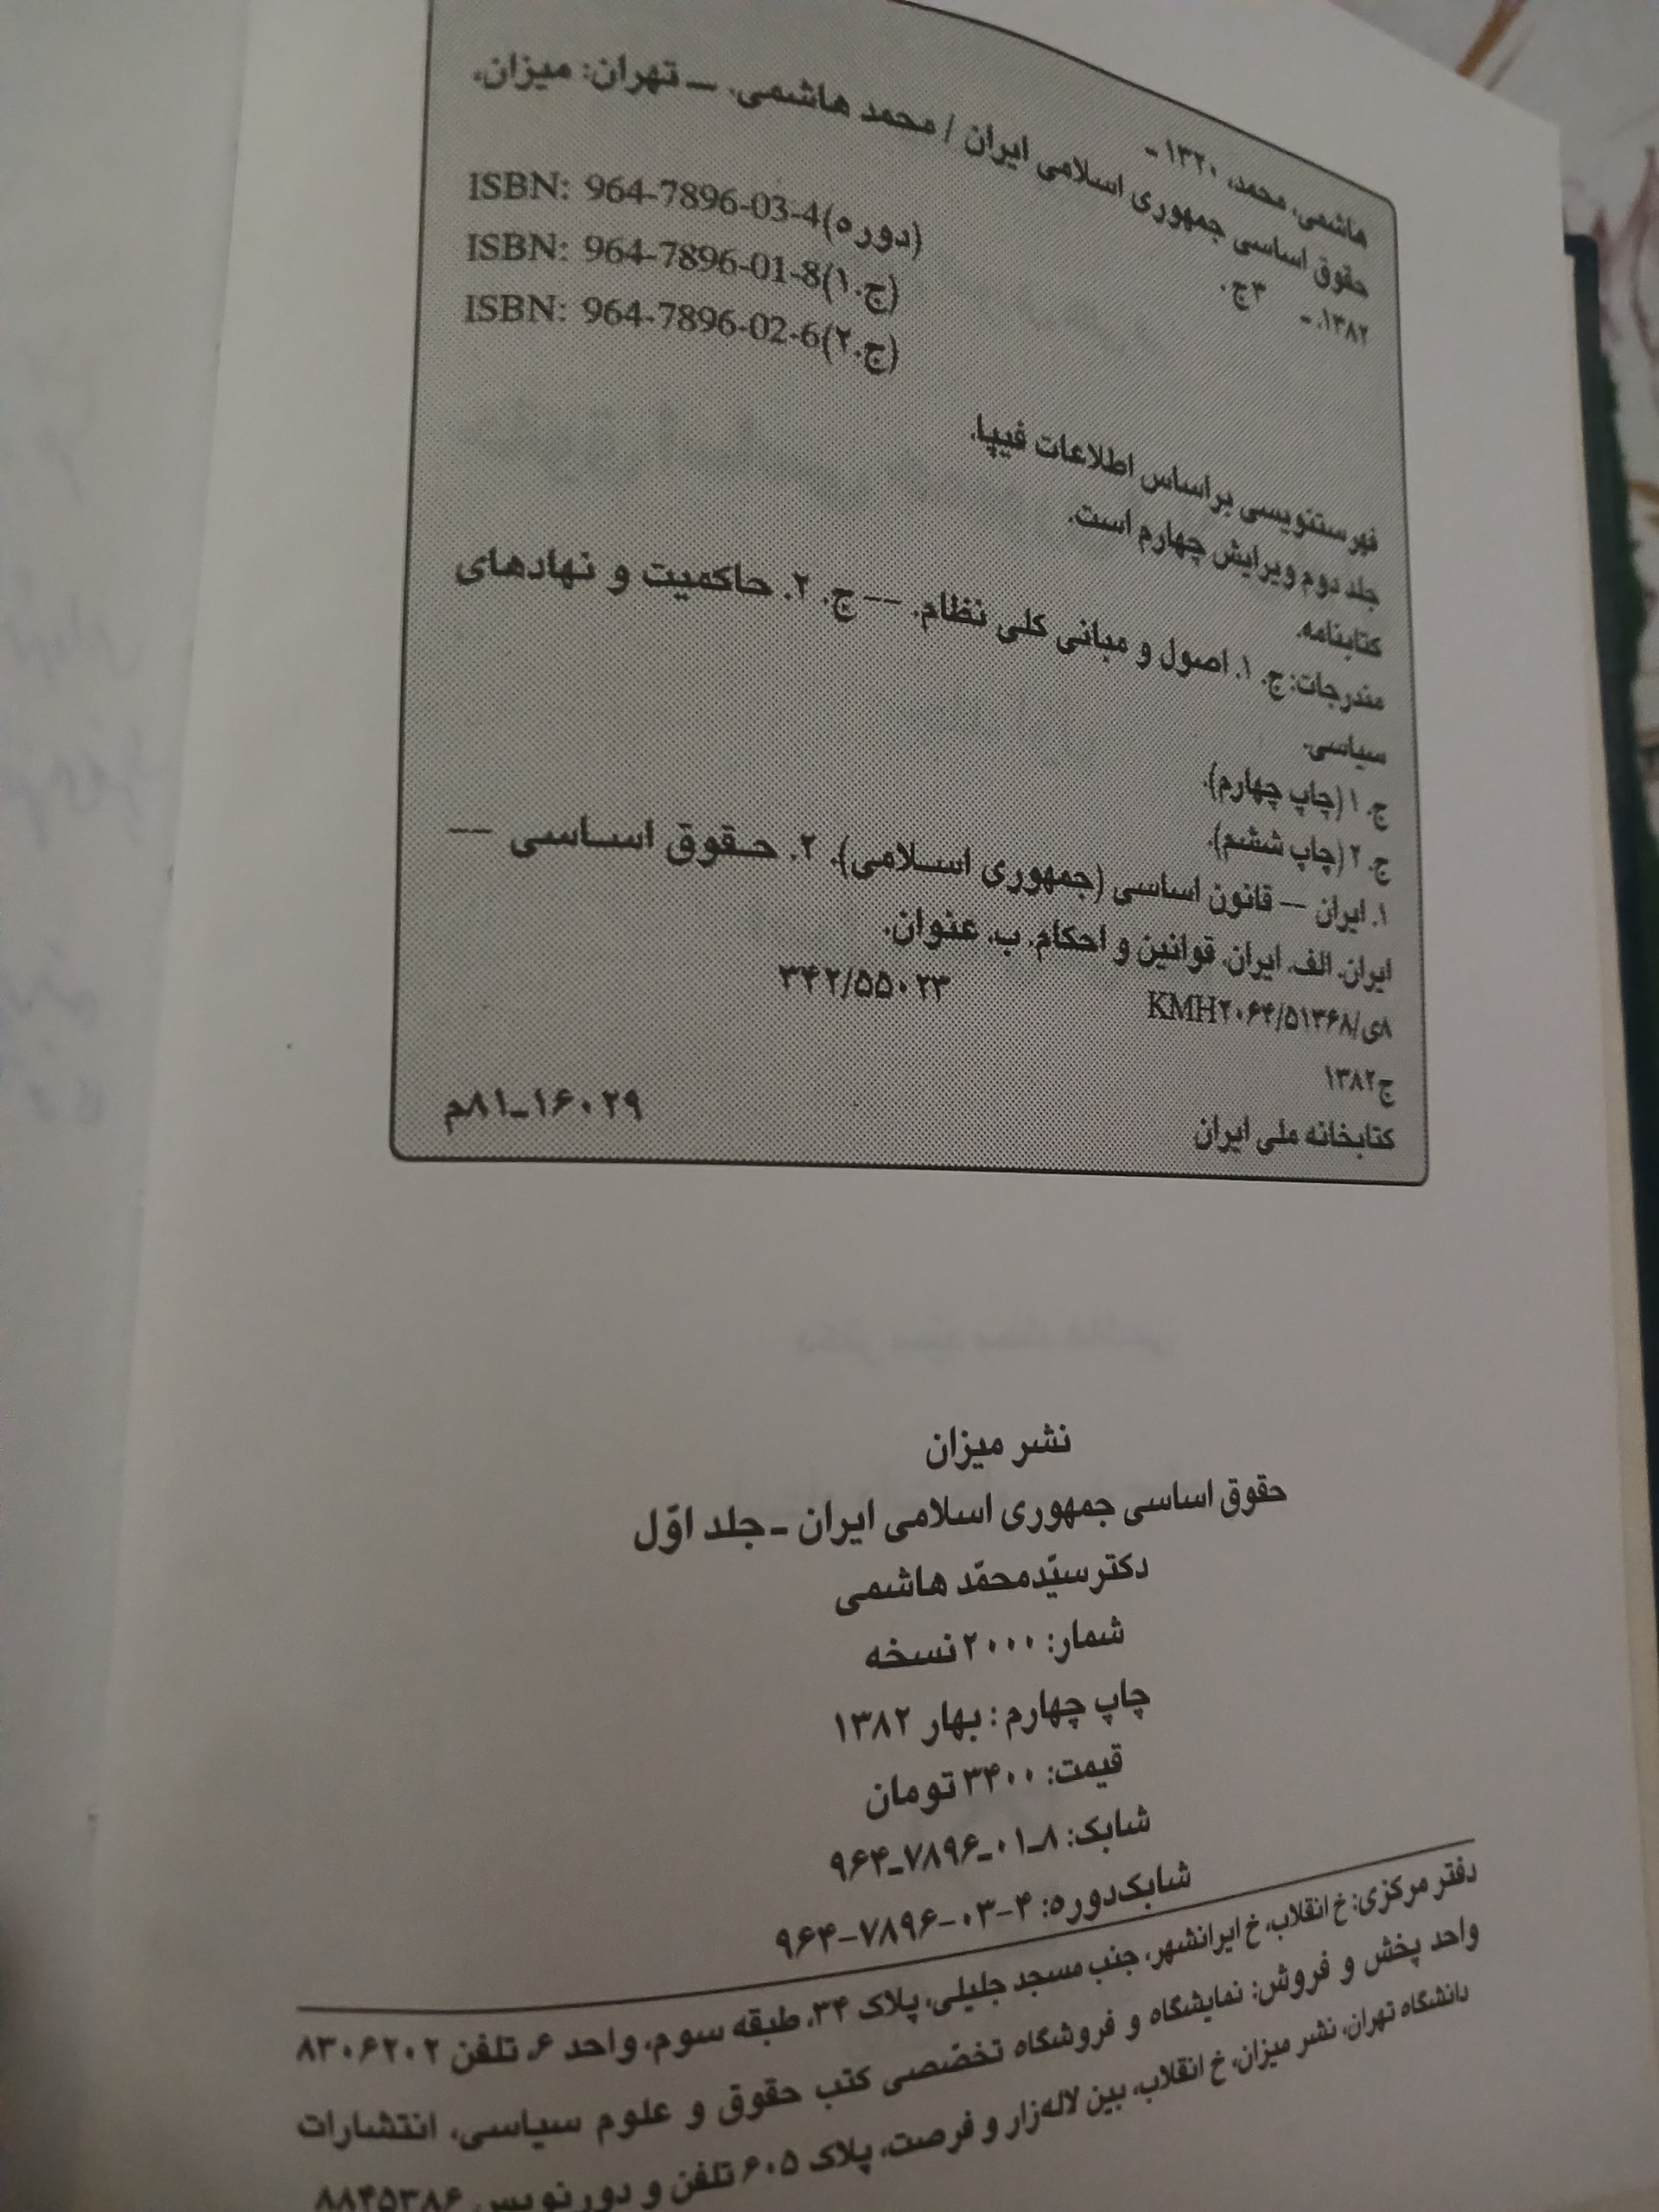 هاشمی، محمد، ۱۳۲۰ -
حقوق اساسی جمهوری اسلامی ایران / محمد هاشمی. — تهران: میزان،
۱۳۸۲. - ۳ج.
ISBN: 964-7896-03-4(دوره)
ISBN: 964-7896-01-8(ج.۱)
ISBN: 964-7896-02-6(ج.۲)
فهرستنویسی براساس اطلاعات فیپا.
جلد دوم ویرایش چهارم است.
کتابنامه.
مندرجات: ج. ۱. اصول و مبانی کلی نظام. -- ج. ۲. حاکمیت و نهادهای
سیاسی.
ج. ۱ (چاپ چهارم).
ج. ۲ (چاپ ششم).
۱. ایران — قانون اساسی (جمهوری اسلامی). ۲. حقوق اساسی --
ایران. الف. ایران. قوانین و احکام. ب. عنوان.
۸ی/۵۱۳۶۸/KMH۲۰۶۴ ۳۴۲/۵۵۰۲۳
ج۱۳۸۲
کتابخانه ملی ایران ۱۶۰۲۹-۸۱م
نشر میزان
حقوق اساسی جمهوری اسلامی ایران - جلد اوّل
دکتر سیّدمحمّد هاشمی
شمار: ۲۰۰۰ نسخه
چاپ چهارم : بهار ۱۳۸۲
قیمت: ۳۴۰۰ تومان
شابک: ۸-۰۱-۷۸۹۶-۹۶۴
شابک‌دوره: ۴-۰۳-۷۸۹۶-۹۶۴
دفتر مرکزی: خ انقلاب، خ ایرانشهر، جنب مسجد جلیلی، پلاک ۳۴، طبقه سوم، واحد ۶، تلفن ۸۳۰۶۲۰۲
واحد پخش و فروش: نمایشگاه و فروشگاه تخصّصی کتب حقوق و علوم سیاسی، انتشارات
دانشگاه تهران، نشر میزان، خ انقلاب، بین لاله‌زار و فرصت، پلاک ۶۰۵ تلفن و دورنویس ۸۸۴۵۳۸۶